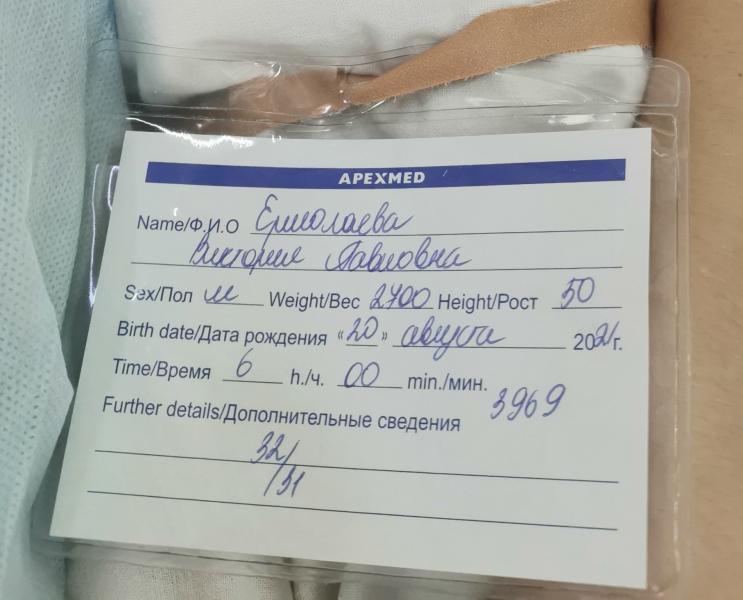 APEXMED
Name/Ф.И.О Ермолаева
Виктория Павловна
Sex/Пол м Weight/Вес 2700 Height/Рост 50
Birth date/Дата рождения «20» августа 2021г.
Time/Время 6 h./ч. 00 min./мин.
Further details/Дополнительные сведения 3969
32/31